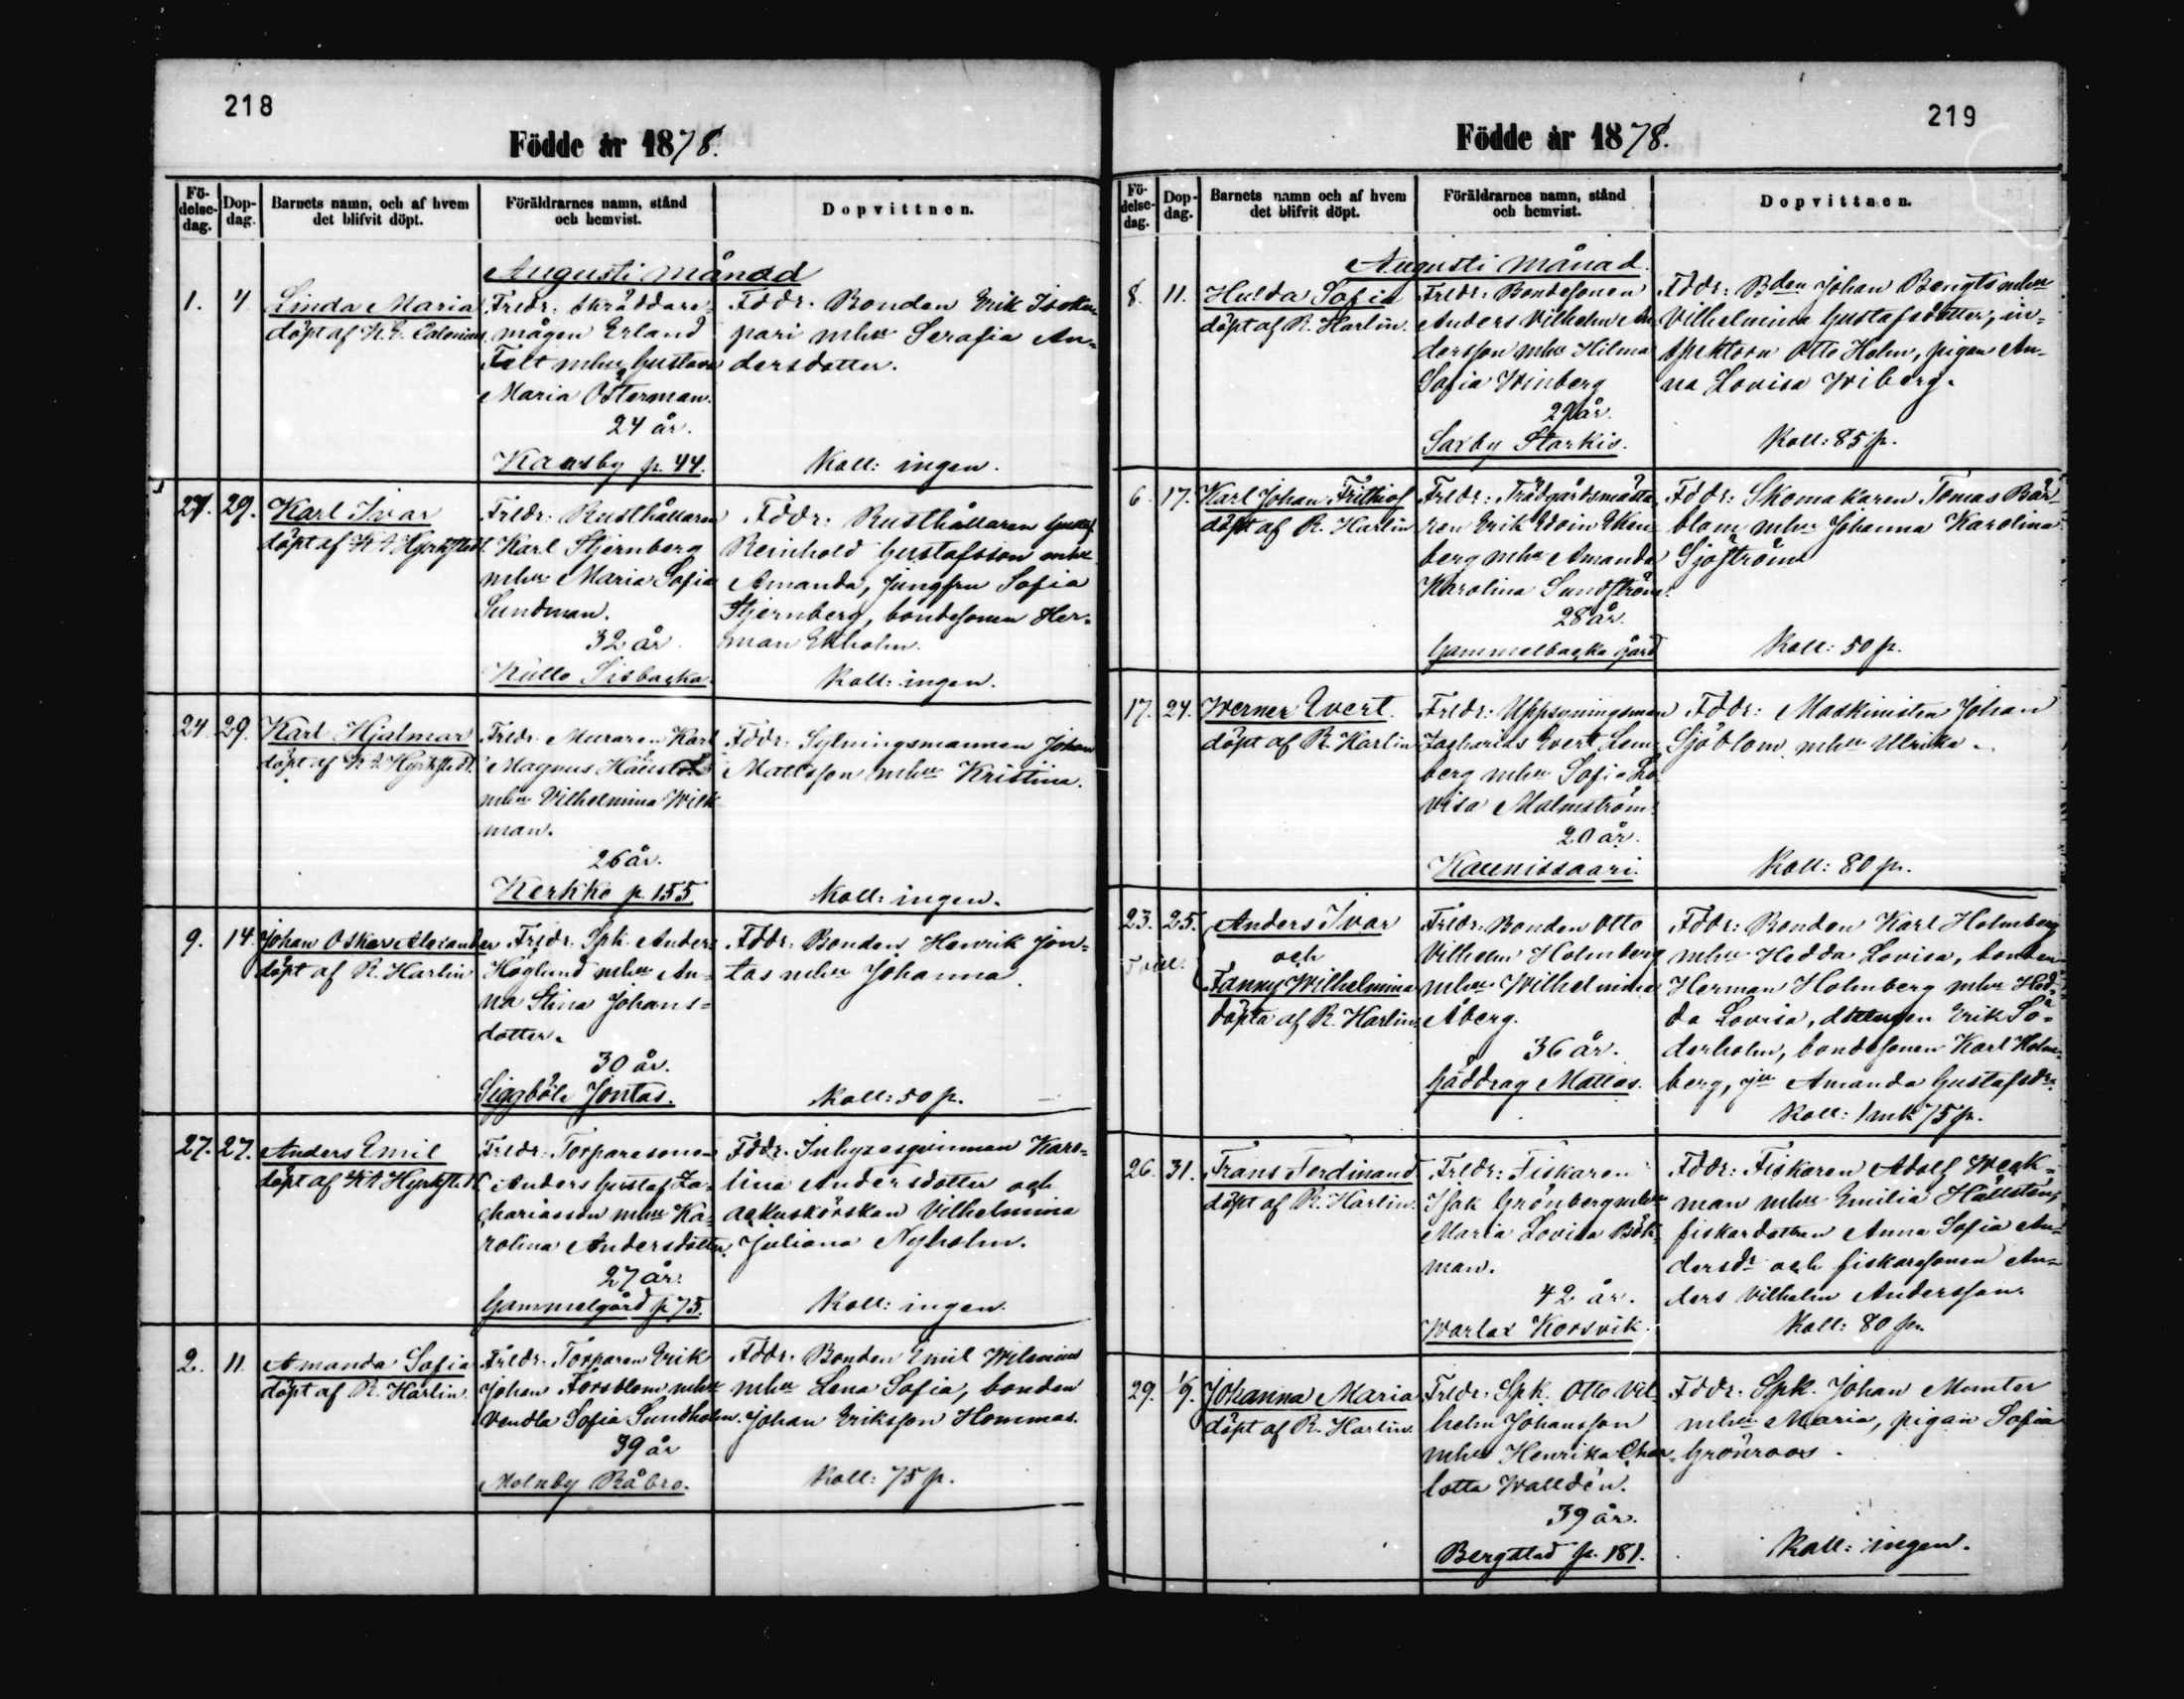 218
Födde år 1878.
Fö-
delse-
dag.
Dop-
dag.
Barnets namn, och af hvem
det blifvit döpt.
Föräldrarnes namn, stånd
och hemvist.
Dopvittnen.
Augusti månad
1.
4
Linda Maria
döpt af K. E. Calonius
Frldr: Skräddare-
mågen Erland
Felt mhu Gustava
Maria Österman.
24 år.
Kaarsby p. 44.
Fddr: Bonden Erik Isoku
pari mhu Serafia An-
dersdotter.
Koll: ingen.
27.
29.
Karl Ivar
döpt af K A Hyrkstedt.
Frldr: Rusthållaren
Karl Stjernberg
mhu Maria Sofia
Sundman.
32 år.
Kullo Sisbacka.
Fddr: Rusthållaren Gustaf
Reinhold Gustafsson mhu
Amanda, jungfru Sofia
Stjernberg, bondesonen Her-
man Ekholm.
Koll: ingen.
24.
29.
Karl Hjalmar
döpt af K A Hyrkstedt.
Frldr: Muraren Karl
Magnus
mhu Vilhelmina Wilk
man.
26 år.
Kerkko p. 155
Fddr: Sytningsmannen Johan
Mattsson mhu Kristina.
Koll: ingen.
9.
14.
Johan Oskar Alexander
döpt af R. Harlin
Frldr: Spk. Anders
Höglund mhu An-
na Stina Johans-
dotter.
30 år.
Siggböle Jontas.
Fddr: Bonden Henrik Jon-
tas mhu Johanna.
Koll: 50 p.
27.
27.
Anders Emil
döpt af K A Hyrkstedt
Frldr: Torparesonen
Anders Gustaf Za-
chariasson mhu Ka-
rolina Andersdotter.
27 år.
Gammelgård p 75.
Fddr: Inhysesqvinnan Karo-
lina Andersdotter och
ackuskörskan Vilhelmina
Juliana Nyholm.
Koll: ingen.
2.
11.
Amanda Sofia
döpt af R. Harlin.
Frldr: Torparen Erik
Johan Forsblom mhu
Vendla Sofia Sundholm.
39 år
Molnby Råbro.
Fddr: Bonden Emil Wilenius
mhu Lena Sofia, bonden
Johan Eriksson Hommas.
Koll: 75 p.
219
Födde år 1878.
Fö-
delse-
dag.
Dop-
dag.
Barnets namn och af hvem
det blifvit döpt.
Föräldrarnes namn, stånd
och hemvist.
Dopvittnen.
Augusti månad.
8.
11.
Hulda Sofia
döpt af R. Harlin.
Frldr: Bondesonen
Anders Vilhelm An
dersson mhu Hilma
Sofia Winberg
29 år.
Saxby Starkis.
Fddr: Bden Johan Bengts mhu
Vilhelmina Gustafsdotter, in-
spektorn Otto Holm, pigan An-
na Lovisa Wiberg.
Koll: 85 p.
6.
17.
Karl Johan Frithiof
döpt af R. Harlin
Frldr: Trädgårdsmästa
ren Erik Edvin Eken
berg mhu Amanda
Karolina Sundström.
28 år.
Gammelbacka gård
Fddr: Skomakaren Tomas Bär
blom mhu Johanna Karolina
Sjöström
Koll: 50 p.
17.
24.
Werner Evert.
döpt af R. Harlin
Frldr: Uppsyningsman
Zacharias Evert Lem-
berg mhu Sofia Lo
visa Malmström.
20 år.
Kaunissaari.
Fddr: Maskinisten Johan
Sjöblom mhu Ulrika.
Koll: 80 p.
23.
25.
Tvill.
Anders Ivar
och
Fanny Wilhelmina
döpta af R. Harlin
Frldr: Bonden Otto
Vilhelm Holmberg
mhu Wilhelmina
Åberg.
36 år.
Gäddrag Mattas.
Fddr: Bonden Karl Holmberg
mhu Hedda Lovisa, bonden
Herman Holmberg mhu Hed-
da Lovisa, drängen Erik Sö-
derholm, bondesonen Karl Holm-
berg, ju Amanda Gustafsdr.
Koll: 1 mk 75 p.
26.
31.
Frans Ferdinand
döpt af R. Harlin.
Frldr: Fiskaren
Isak Grönberg mhu
Maria Lovisa Böck
man.
42 år.
Warlax Korsvik.
Fddr: Fiskaren Adolf Weck-
man mhu Emilia Hällsten,
fiskardottren Anna Sofia An-
dersdr och fiskaresonen An-
ders Vilhelm Andersson.
Koll: 80 p.
29.
1/9.
Johanna Maria
döpt af R. Harlin.
Frldr: Spk. Otto Vil
helm Johansson
mhu Henrika Char
lotta Walldén.
39 år.
Bergstad p. 181.
Fddr: Spk. Johan Munter
mhu Maria, pigan Sofia
Grönroos.
Koll: ingen.